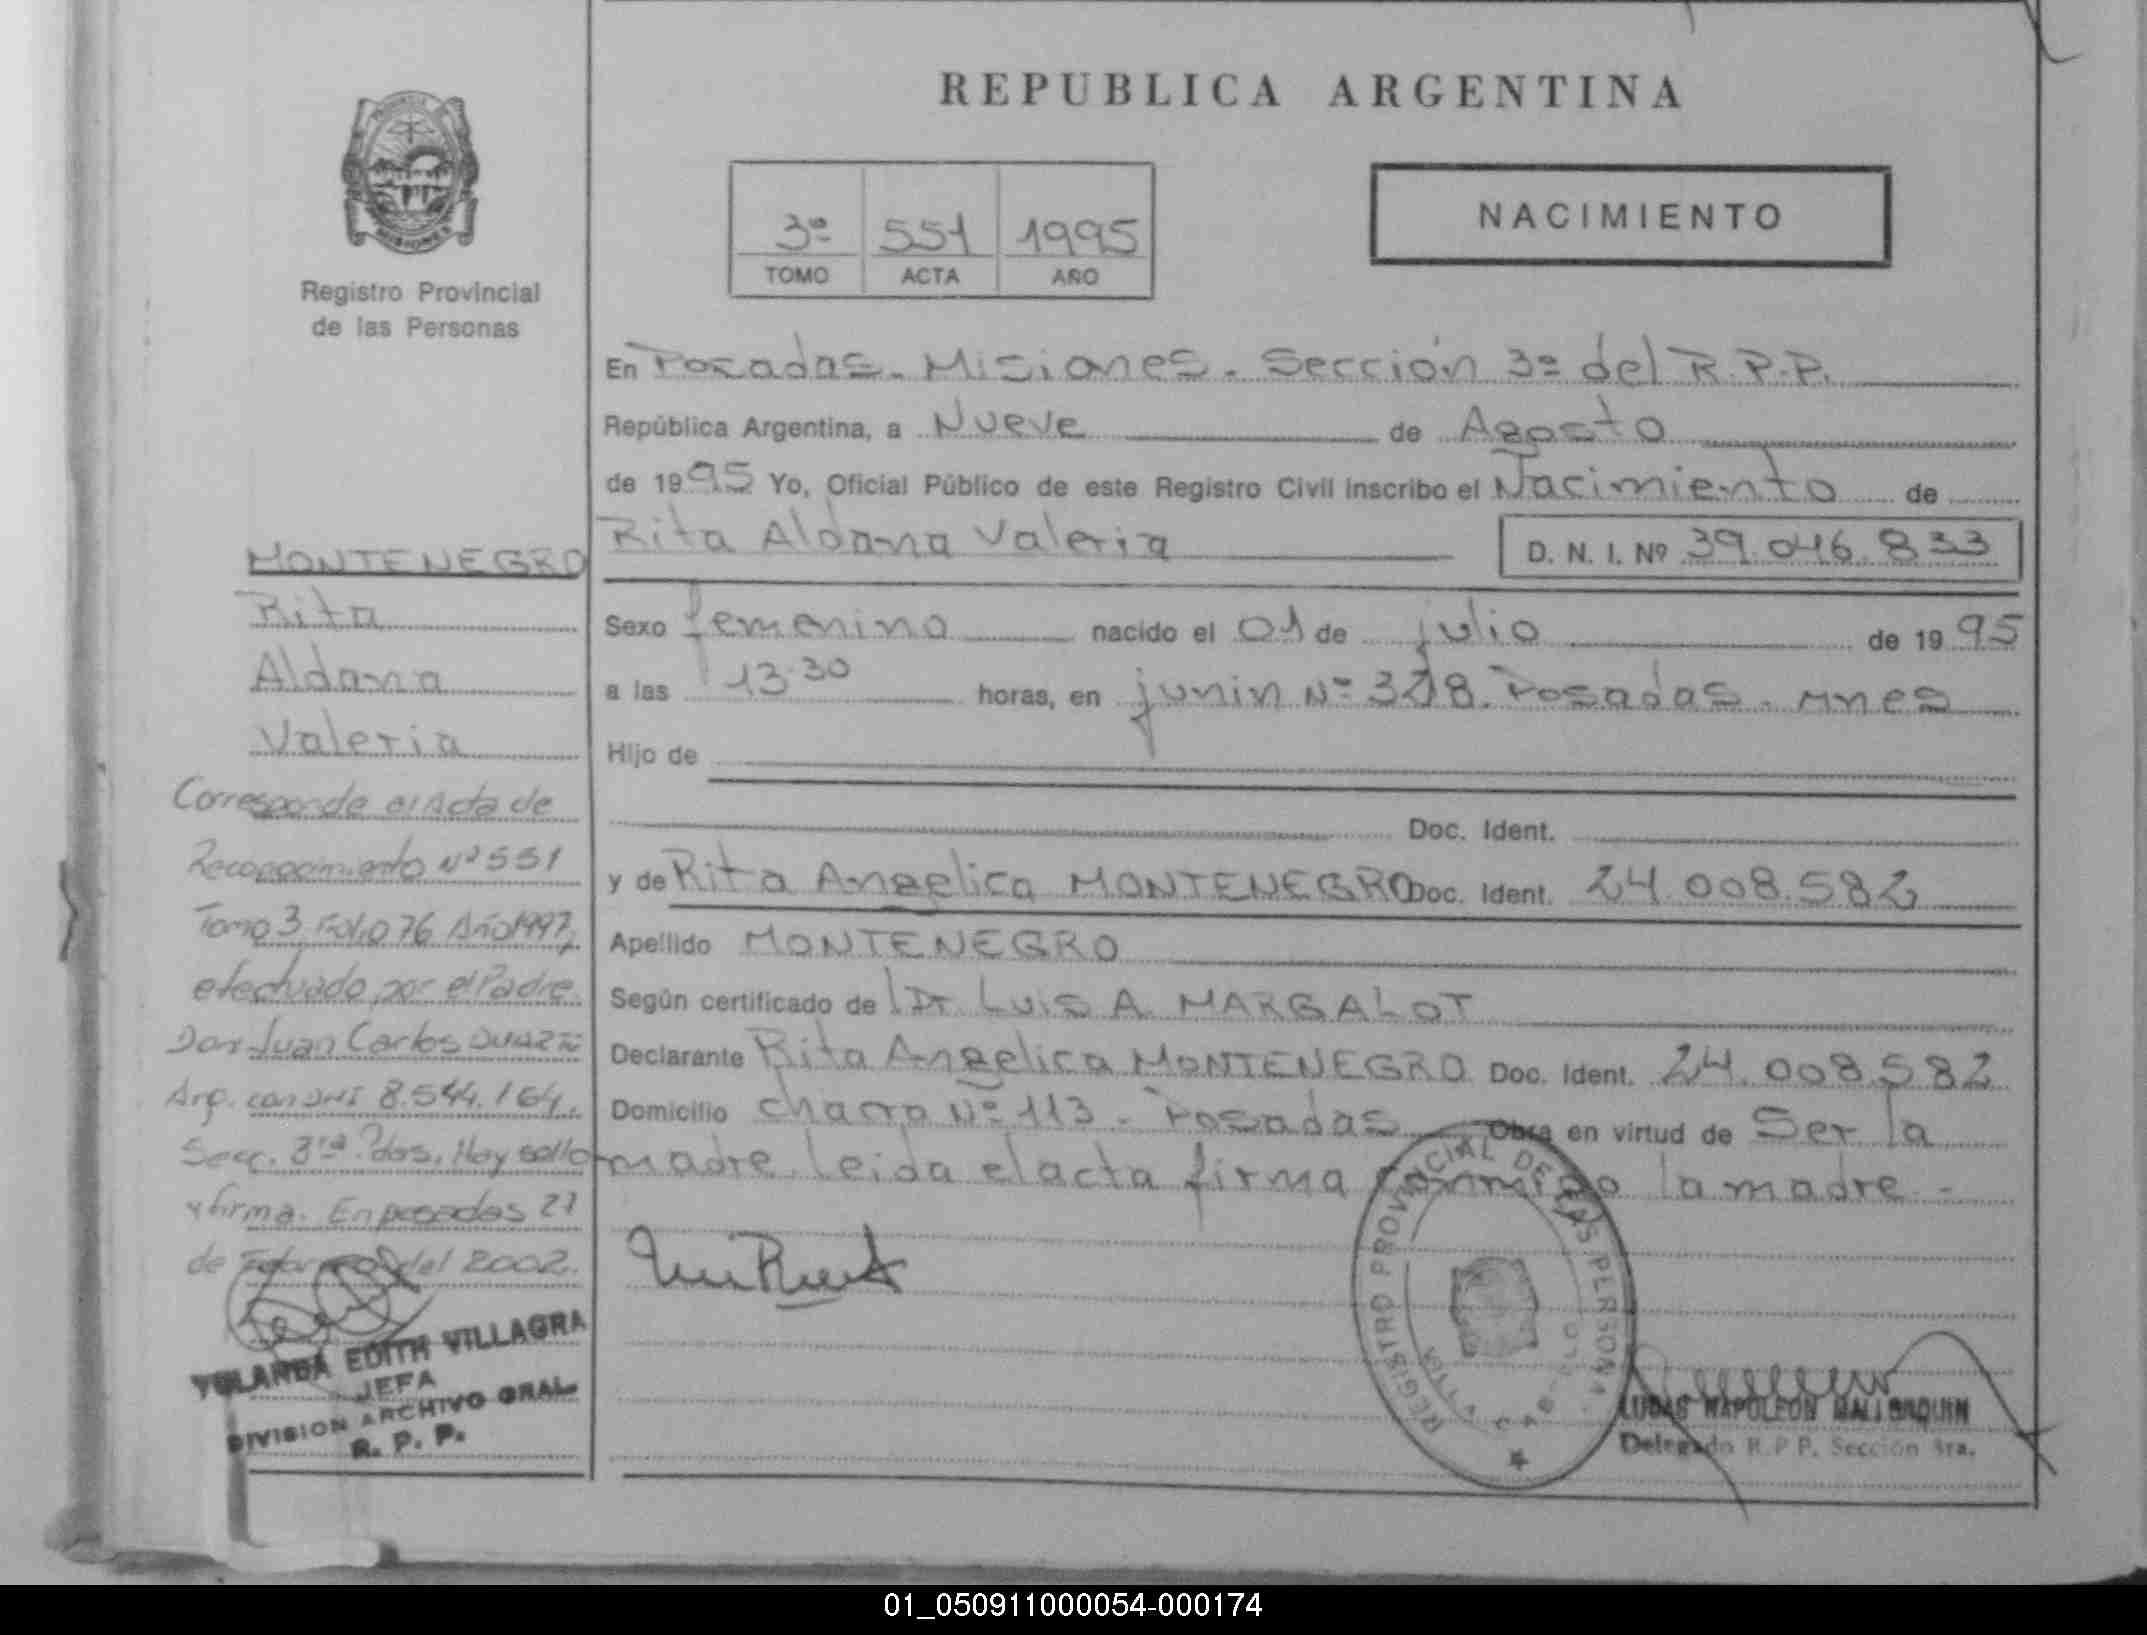 REPUBLICA ARGENTINA
NACIMIENTO
3º 551 1995
TOMO ACTA AÑO
MISIONES
Registro Provincial
de las Personas
En Posadas. Misiones. Sección 3º del R.P.P.
República Argentina, a Nueve de Agosto
de 1995 Yo, Oficial Público de este Registro Civil inscribo el Nacimiento de
Rita Aldana Valeria D. N. I. Nº 39.046.833
Sexo femenino nacido el 01 de julio de 1995
a las 13.30 horas, en junin Nº 328. Posadas. Mnes
Hijo de
Doc. Ident.
y de Rita Angelica MONTENEGRO Doc. Ident. 24.008.582
Apellido MONTENEGRO
Según certificado de Dr. LUIS A. MARGALOT
Declarante Rita Angelica MONTENEGRO Doc. Ident. 24.008.582
Domicilio chacra Nº 113 - Posadas Obra en virtud de Ser la
madre. leida el acta firma conmigo la madre.-
MONTENEGRO
Rita
Aldana
Valeria
Corresponde al Acta de
Reconocimiento Nº 551
Tomo 3 Folio 76 Año 1997,
efectuado por el Padre
Don Juan Carlos
Arg. con DNI 8.544.164.
Secc. 3ra Pdas. Hay sello
y firma. En posadas 21
de Febrero del 2002.
YOLANDA EDITH VILLAGRA
JEFA
DIVISION ARCHIVO GRAL.
R. P. P.
REGISTRO PROVINCIAL DE LAS PERSONAS
LUCAS NAPOLEON
Delegado R.P.P. Sección 3ra.
01_050911000054-000174